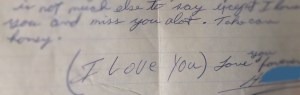 is not much else to say except I love
you and miss you alot. Take care
honey.
(I Love You) Love
your